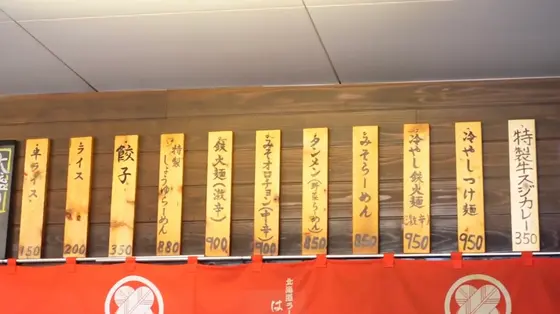 特製牛スジカレー
350
冷やしつけ麺
950
冷やし鉄火麺(激辛)
950
みそらーめん
850
タンメン(野菜らーめん)
850
みそオロチョン(中辛)
900
鉄火麺(激辛)
900
特製
しょうゆらーめん
880
餃子
350
ライス
200
半ライス
150
北海道ラー
は